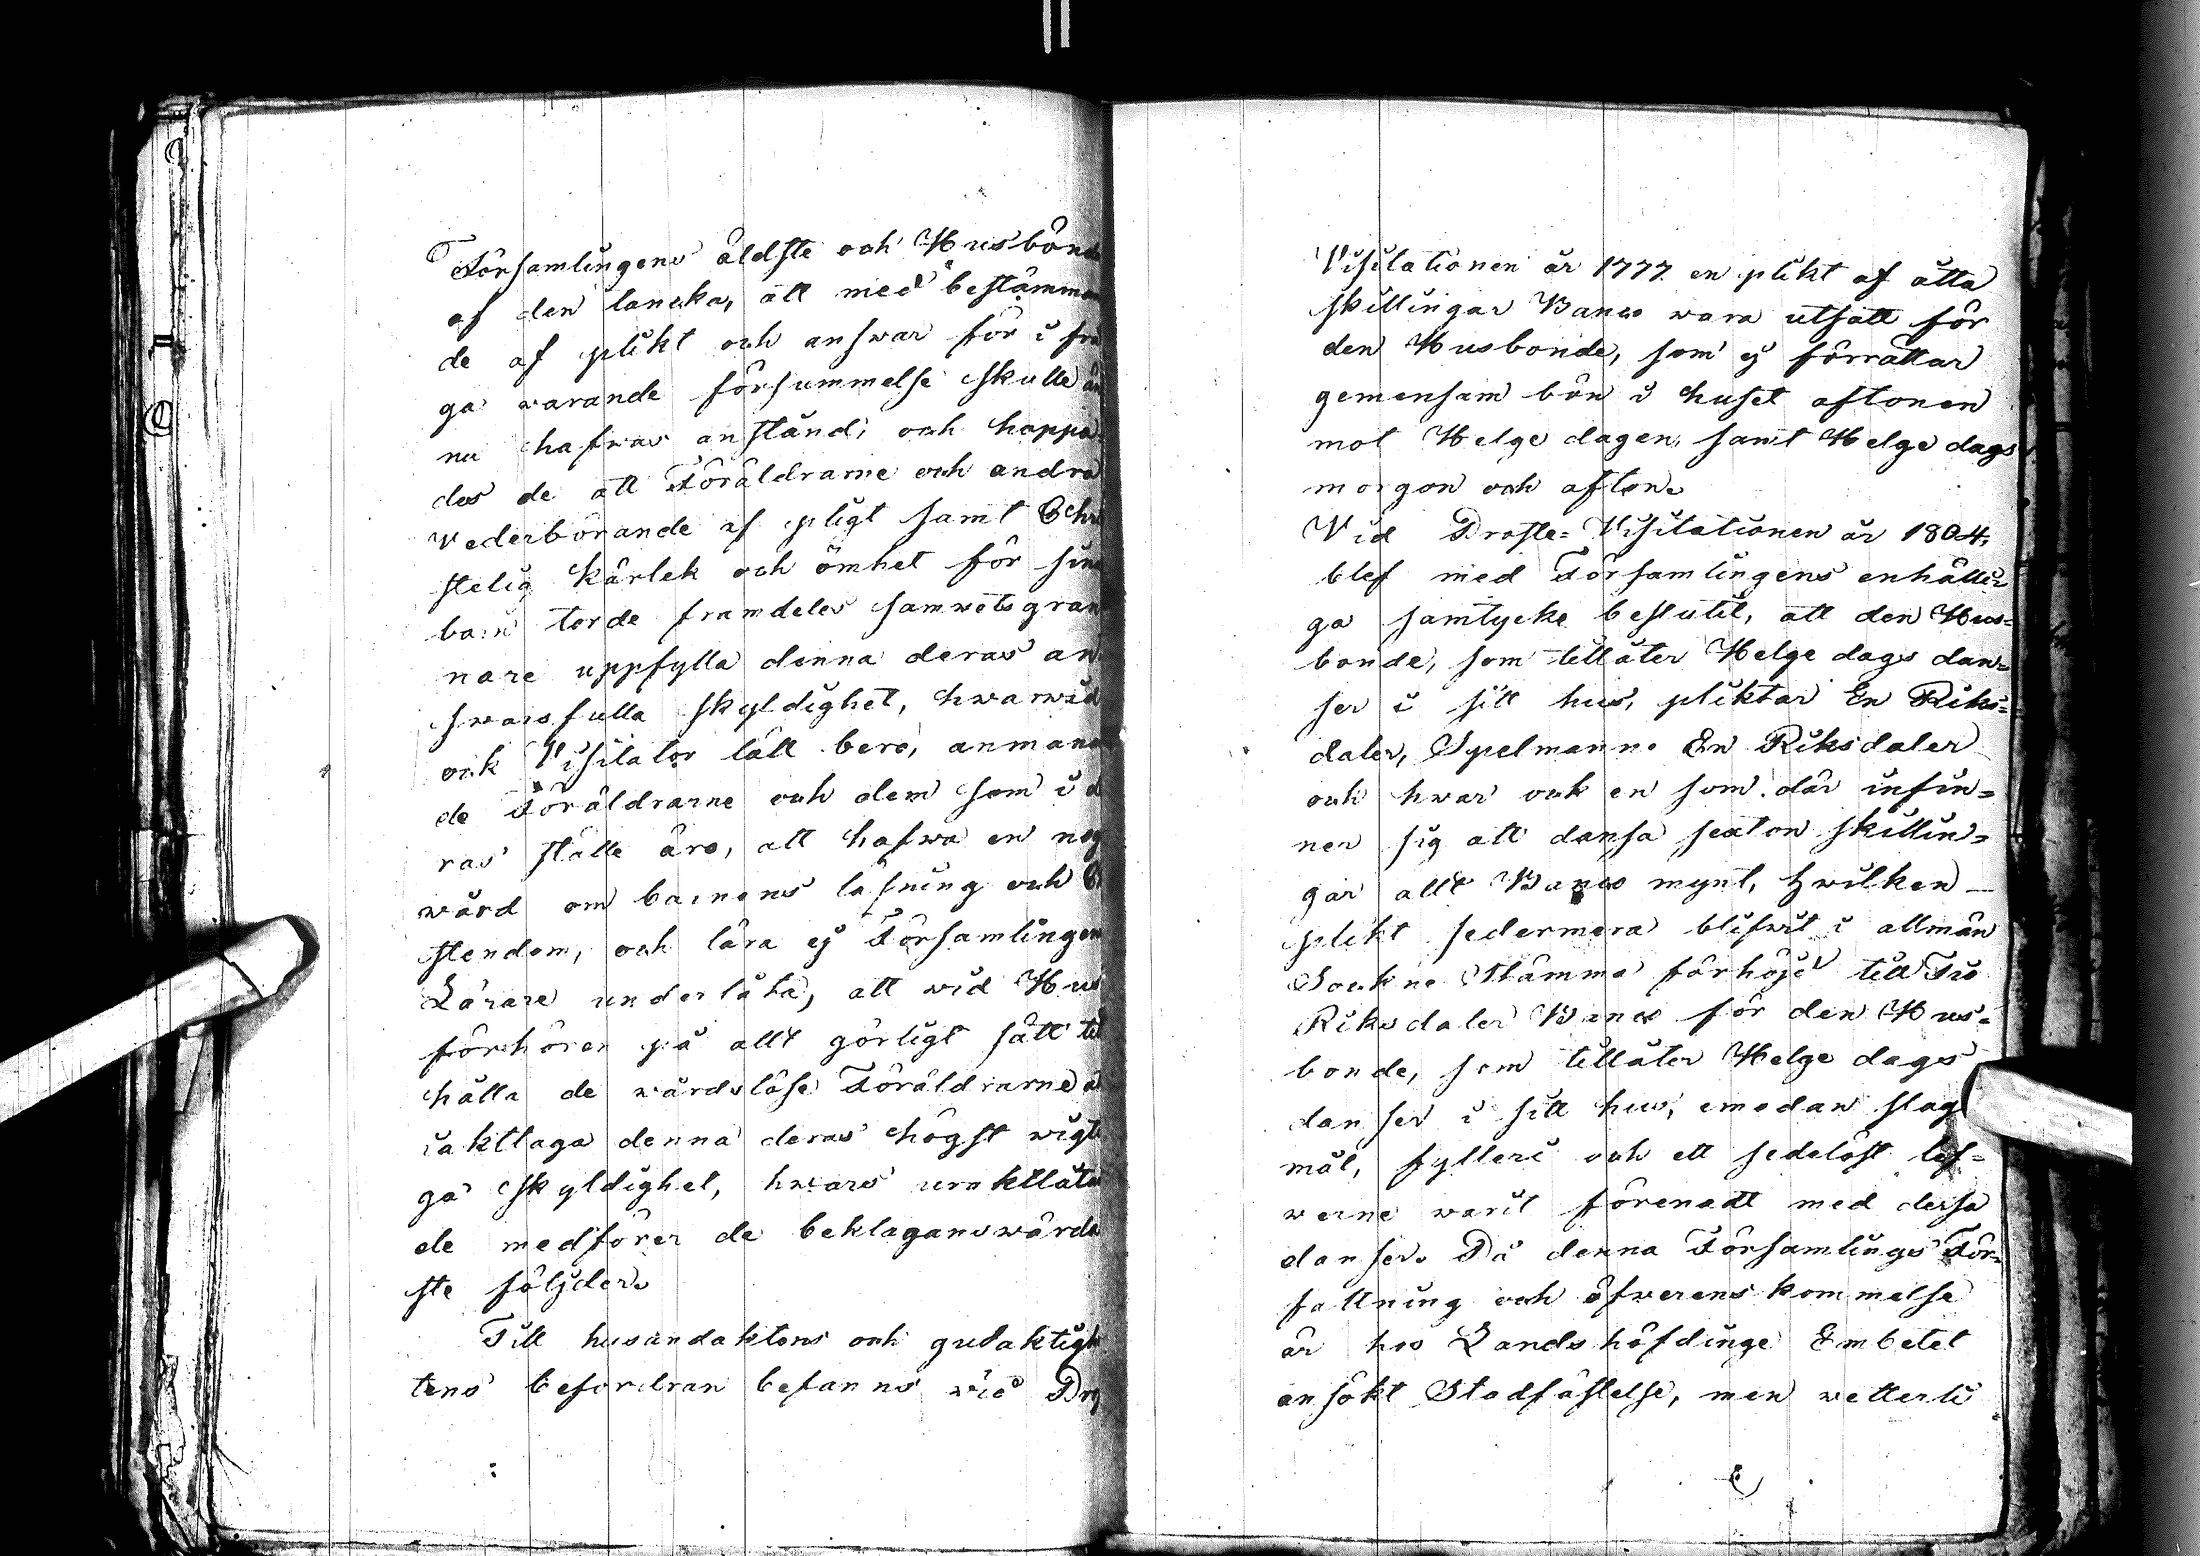 Församlingens äldste och Husbönd
af den tancka, att med bestämman
de af plikt och answar för i frå
ga warande försummelse skulle än
nu hafwas anstånd; och hoppa
des de att Föräldrarne och andra
Vederbörande af pligt samt Chri
stelig kärlek och ömhet för sina
barn torde framdeles samwetsgran
nare uppfylla denna deras an
swarsfulla skyldighet, hwarwid
ock Visitator lätt bero, anmanan
de Föräldrarne och dem som i de
ras ställe äro, att hafwa en nog
wård om barnens läsning och Chri
stendom, och lära ej Församlingens
Lärare underlåta, att wid Hus
förhören på allt görligt sätt till
hålla de wårdslöse Föräldrarne a
iakttaga denna deras högst wigti
ga skyldighet, hwars uraktlåtan
de medförer de beklagansvärda
ste följder.
Till husandaktens och gudaktighe
tens befordran befanns wid Pro
Visitationen år 1777 en plikt af åtta
skillingar Banco wara utsatt för
den Husbonde, som ej förrättar
gemensam bön i huset aftonen
mot Helge dagen, samt Helge dags
morgon och afton.
Vid Proste=Visitationen år 1804,
blef med Församlingens enhälli=
ga samtycke beslutit, att den Hus=
bonde, som tillåter Helge dags dan=
ser i sitt hus, pliktar En Riks=
daler, Spelmann. En Riksdaler
och hwar ock en som där infin=
ner sig att dansa sexton skillin=
gar allt Banco mynt, hwilken
plikt sedermera blifwit i allmän
Sockne Stämma förhöjd till Tio
Riksdaler Banco för den Hus=
bonde, som tillåter Helge dags
danser i sitt hus, emedan slags
mål, fylleri och ett sedelöst lef=
werne warit förenadt med dessa
danser. På denna Församlings För=
fattning och öfwerenskommelse
är hos Landshöfdinge Embetet
ansökt Stadfästelse, men wetterli